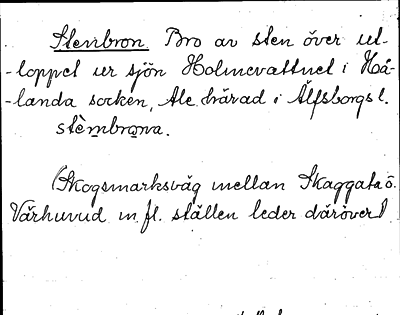 Stenbron. Bro av sten över ut-
-loppet ur sjön Holmevattnet i Hå-
-landa socken, Ale härad i Älfsborgs l.
stèmbrǫna.
(Skogsmarksväg mellan Skaggata o.
Vårhuvud m. fl. ställen leder däröver)